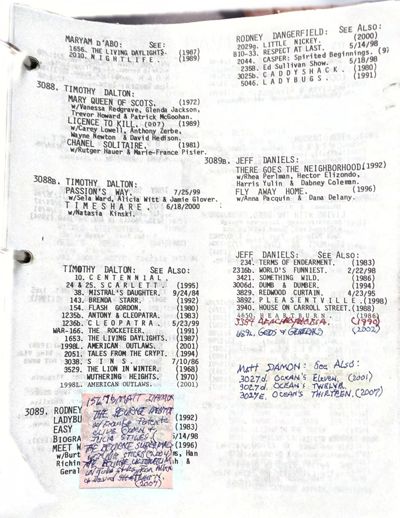 MARYAM D'ABO: SEE:
1656. THE LIVING DAYLIGHTS. (1987)
2010. N I G H T L I F E . (1989)
3088. TIMOTHY DALTON:
MARY QUEEN OF SCOTS. (1972)
w/Vanessa Redgrave, Glenda Jackson,
Trevor Howard & Patrick McGoohan.
LICENCE TO KILL. (007) (1989)
w/Carey Lowell, Anthony Zerbe,
Wayne Newton & David Hedison.
CHANEL SOLITAIRE. (1981)
w/Rutger Hauer & Marie-France Pisier.
3088B. TIMOTHY DALTON:
PASSION'S WAY. 7/25/99
w/Sela Ward, Alicia Witt & Jamie Glover.
T I M E S H A R E . 6/18/2000
w/Natasia Kinski.
TIMOTHY DALTON: SEE ALSO:
10. C E N T E N N I A L .
24 & 25. S C A R L E T T . (1995)
38. MISTRAL'S DAUGHTER. 9/24/84
143. BRENDA STARR. (1992)
154. FLASH GORDON. (1980)
1235B. ANTONY & CLEOPATRA. (1983)
1236B. C L E O P A T R A . 5/23/99
WAR-166. THE ROCKETEER. (1991)
1653. THE LIVING DAYLIGHTS. (1987)
1998L. AMERICAN OUTLAWS. (2001)
2051. TALES FROM THE CRYPT. (1994)
3038. S I N S . 7/10/86
3529. THE LION IN WINTER. (1968)
WUTHERING HEIGHTS. (1970)
1998L. AMERICAN OUTLAWS. (2001)
3089. RODNEY
LADYBU (1992)
EASY (1983)
Biogra 5/14/98
MEET W (1996)
w/Burt s, Han
Richin h &
Geral
MATT DAMON
THE BOURNE
CLIVE OWEN &
JULIA STILES.
THE BOURNE SUPREMACY
THE BOURNE ULTIMATUM
(2007)
RODNEY DANGERFIELD: SEE ALSO:
2029g. LITTLE NICKEY. (2000)
B10-33. RESPECT AT LAST. 5/14/98
2044. CASPER: Spirited Beginnings. (9)
235B. Ed Sullivan Show. 5/18/98
3025B. C A D D Y S H A C K . (1980)
5046. L A D Y B U G S . (1991)
3089B. JEFF DANIELS:
THERE GOES THE NEIGHBORHOOD(1992)
w/Rhea Perlman, Hector Elizondo,
Harris Yulin & Dabney Coleman.
FLY AWAY HOME. (1996)
w/Anna Pacquin & Dana Delany.
JEFF DANIELS: SEE ALSO:
234. TERMS OF ENDEARMENT. (1983)
2316b. WORLD'S FUNNIEST. 2/22/98
3421. SOMETHING WILD. (1986)
3006d. DUMB & DUMBER. (1994)
3829. REDWOOD CURTAIN. 4/23/95
3892. P L E A S E N T V I L L E . (1998)
3940. HOUSE ON CARROLL STREET. (1988)
4650. H E A R T B U R N . (1986)
3359 ARACHNOPHOBIA. (1990)
GODS & GENERALS (2002)
Matt DAMON: See Also:
3027d. OCEAN'S Eleven. (2001)
3027d. OCEAN'S TWELVE.
3027E. OCEAN'S THIRTEEN. (2007)